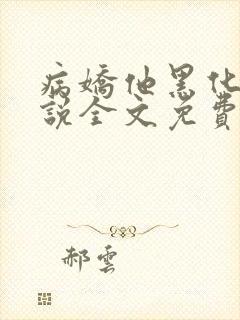 病嬌他黑化
說全文免費
郝雲